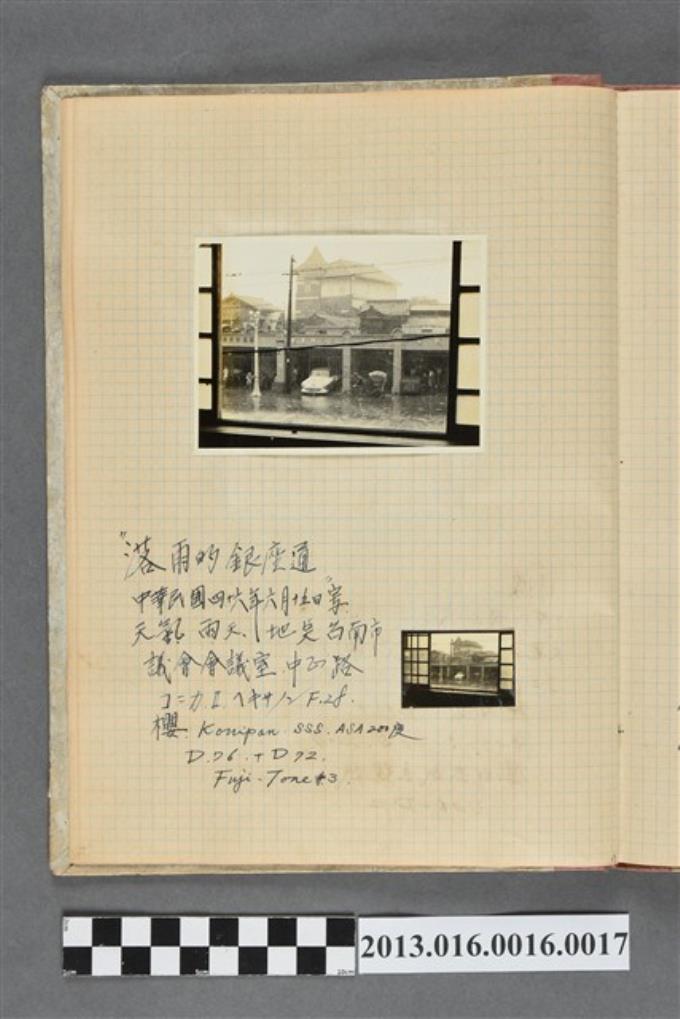 "落雨的銀座通"
中華民國四十六年六月十五日寫
天氣 雨天、地点 台南市
議會會議室、中正路
コニカ.Ⅱ.ヘキサノン F.2.8.
櫻. Konipan. SSS. ASA200度
D.76. + D72.
Fuji-Tone #3.
2013.016.0016.0017